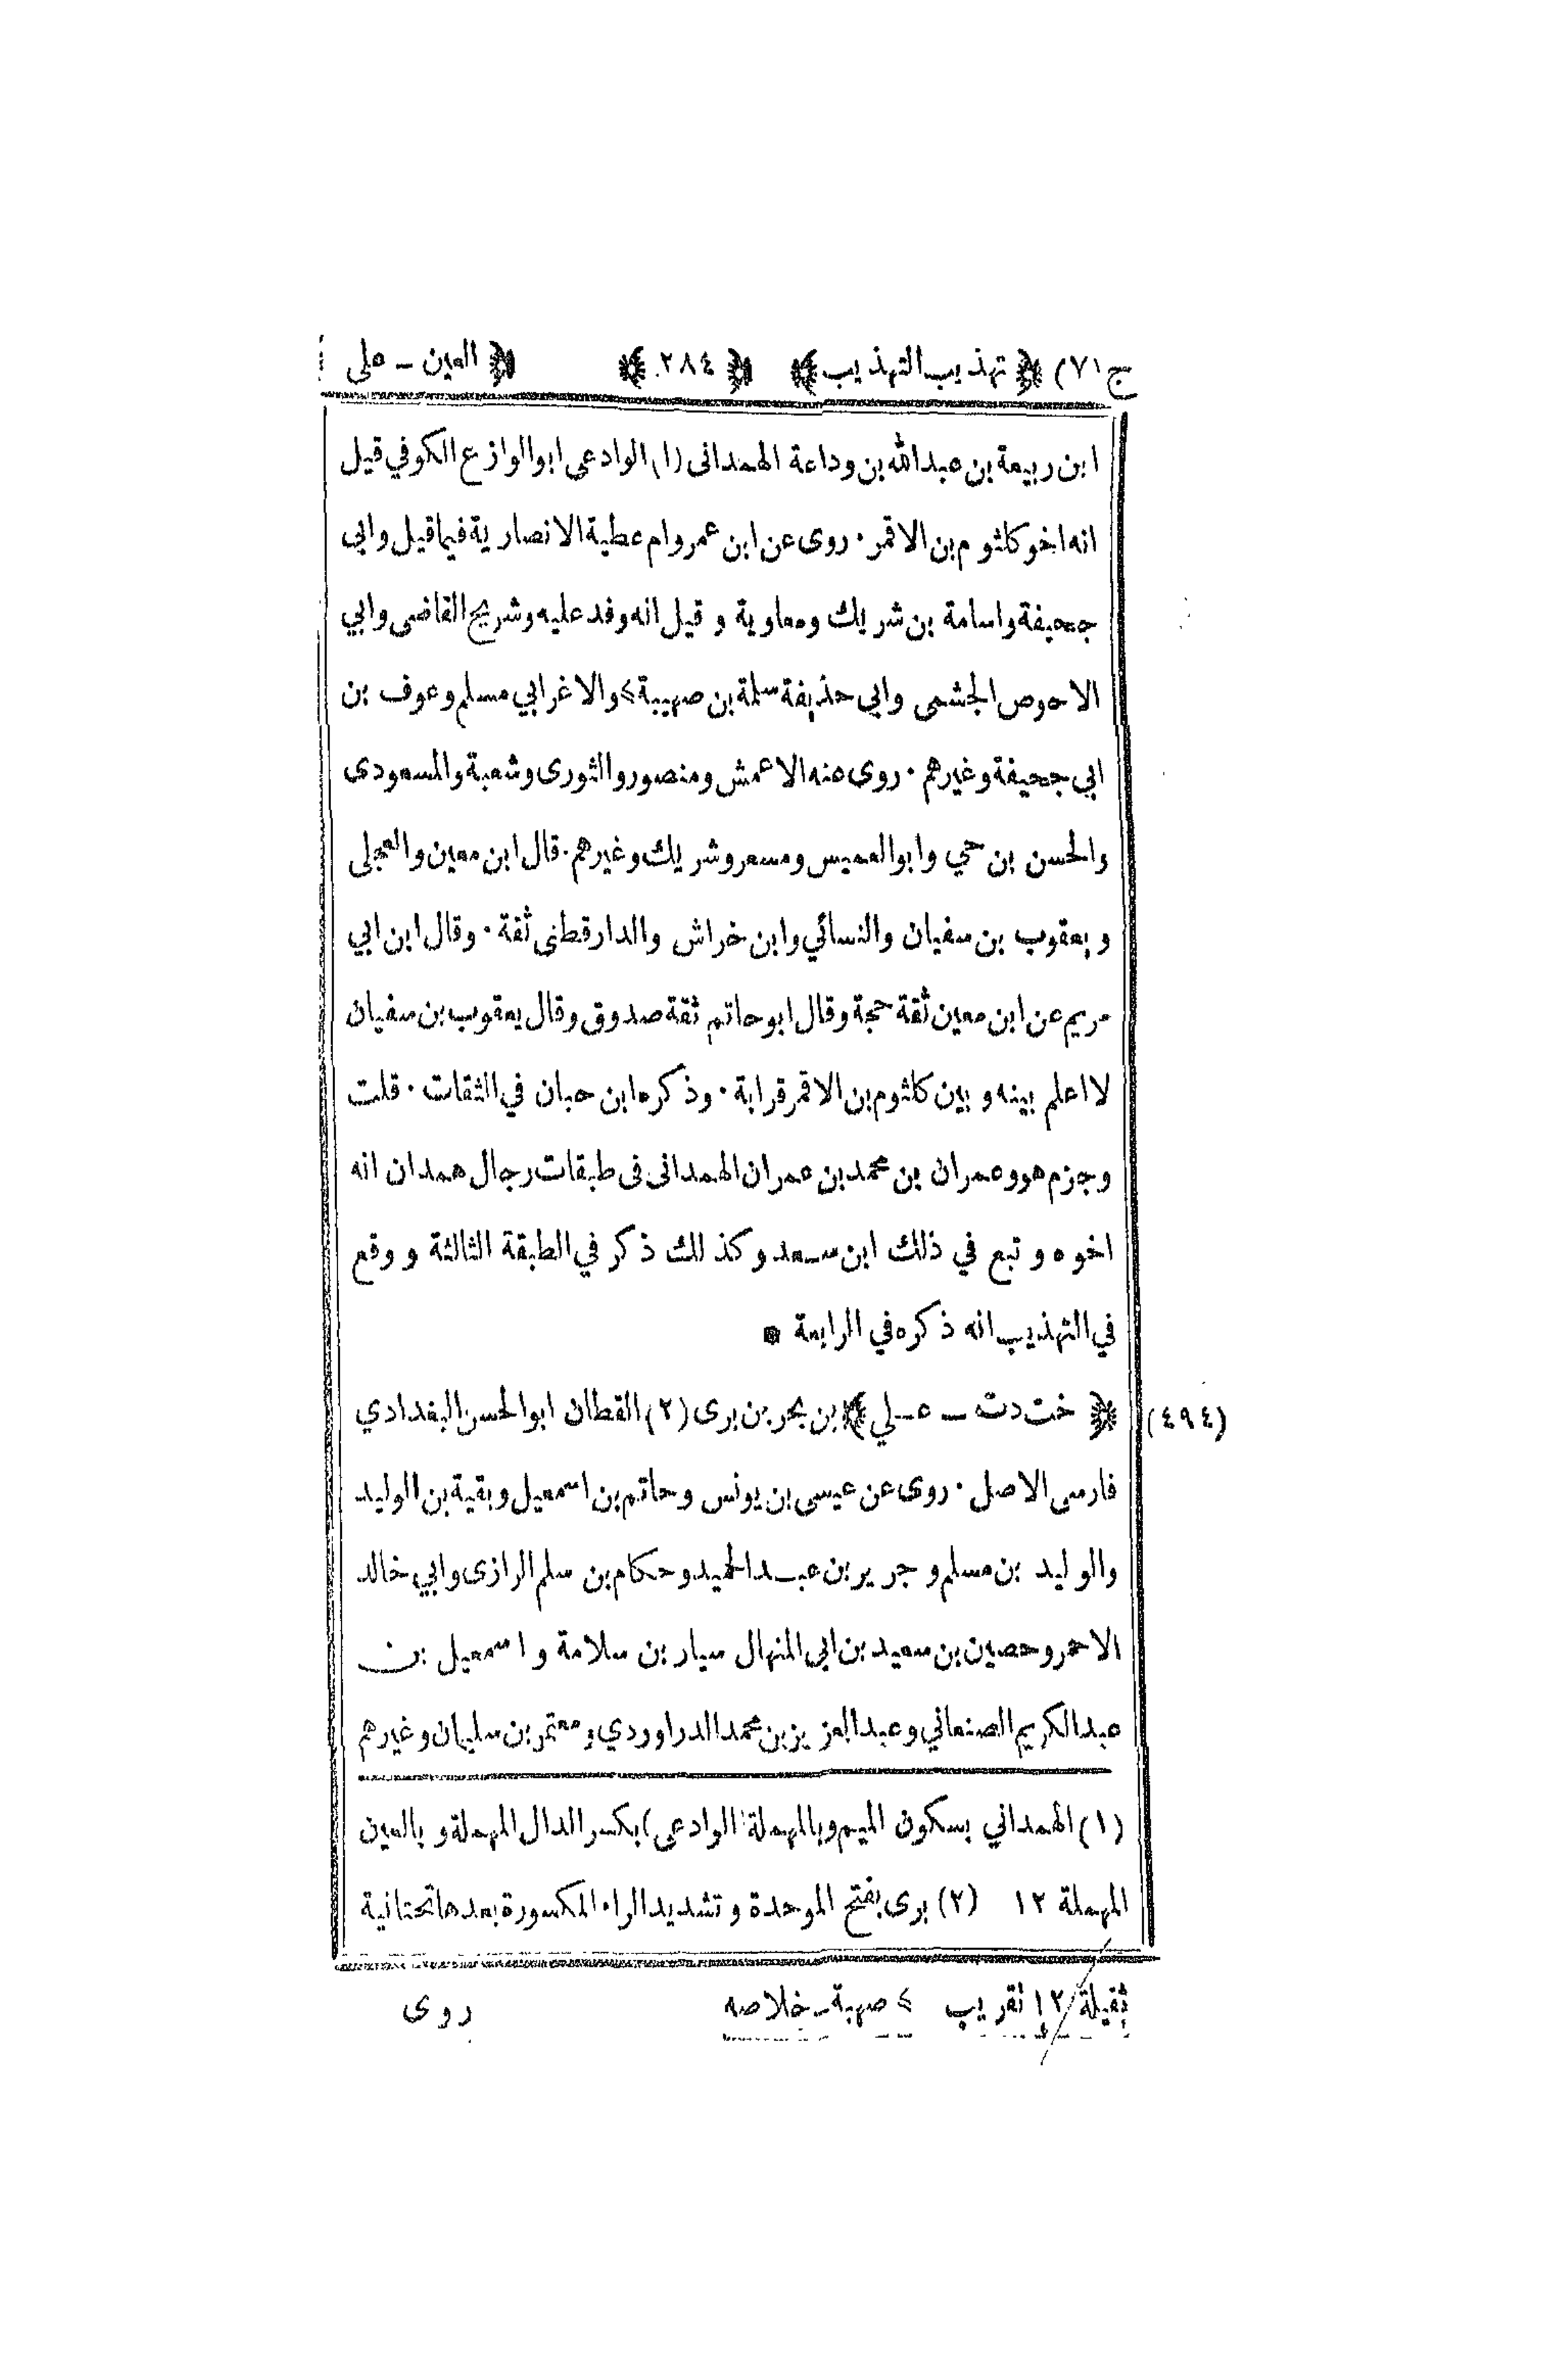 ج (٧) ﴿ تهذيب التهذيب ﴾ ﴿ ٢٨٤ ﴾ ﴿ العين – على
ابن ربيعة بن عبدالله بن وداعة الهمدانى (١) الوادعى ابوالوازع الكوفي قيل
انه اخو كلثوم بن الاقمر · روى عن ابن عمر وام عطية الانصارية فيما قيل وابي
جحيفة واسامة بن شريك ومعاوية و قيل انه وفد عليه وشريح القاضى وابي
الاحوص الجشمى وابي حذيفة سلمة بن صهيبة> والاغرابي مسلم وعوف بن
ابي جحيفة وغيرهم · روى عنه الاعمش ومنصور والثورى وشعبة والمسعودى
والحسن بن حي وابوالعميس ومسعر وشريك وغيرهم · قال ابن معين والعجلى
ويعقوب بن سفيان والنسائي وابن خراش والدارقطنى ثقة · وقال ابن ابي
مريم عن ابن معين ثقة حجة وقال ابوحاتم ثقة صدوق وقال يعقوب بن سفيان
لااعلم بينه و بين كلثوم بن الاقمر قرابة · وذكره ابن حبان في الثقات · قلت
وجزم هو وعمران بن محمد بن عمران الهمدانى فى طبقات رجال همدان انه
اخوه و تبع في ذلك ابن سعد وكذلك ذكر في الطبقة الثالثة و وقع
في التهذيب انه ذكره في الرابعة *
(٤٩٤) ﴿ خت دت – على ﴾ بن بحر بن برى (٢) القطان ابوالحسن البغدادي
فارسى الاصل · روى عن عيسى بن يونس وحاتم بن اسمعيل وبقية بن الوليد
والوليد بن مسلم و جرير بن عبدالحميد وحكام بن سلم الرازى وابي خالد
الاحمر وحصين بن سعيد بن ابي المنهال سيار بن سلامة و اسمعيل بن
عبدالكريم الصنعاني وعبدالعزيز بن محمد الدراوردي و معتمر بن سليمان وغيرهم
(١) الهمداني بسكون الميم وبالمهملة (الوادعى) بكسر الدال المهملة و بالعين
المهملة ١٢ (٢) برى بفتح الموحدة وتشديد الراء المكسورة بعدها تحتانية
ثقيلة ١٢ تقريب > صهبة – خلاصه روى